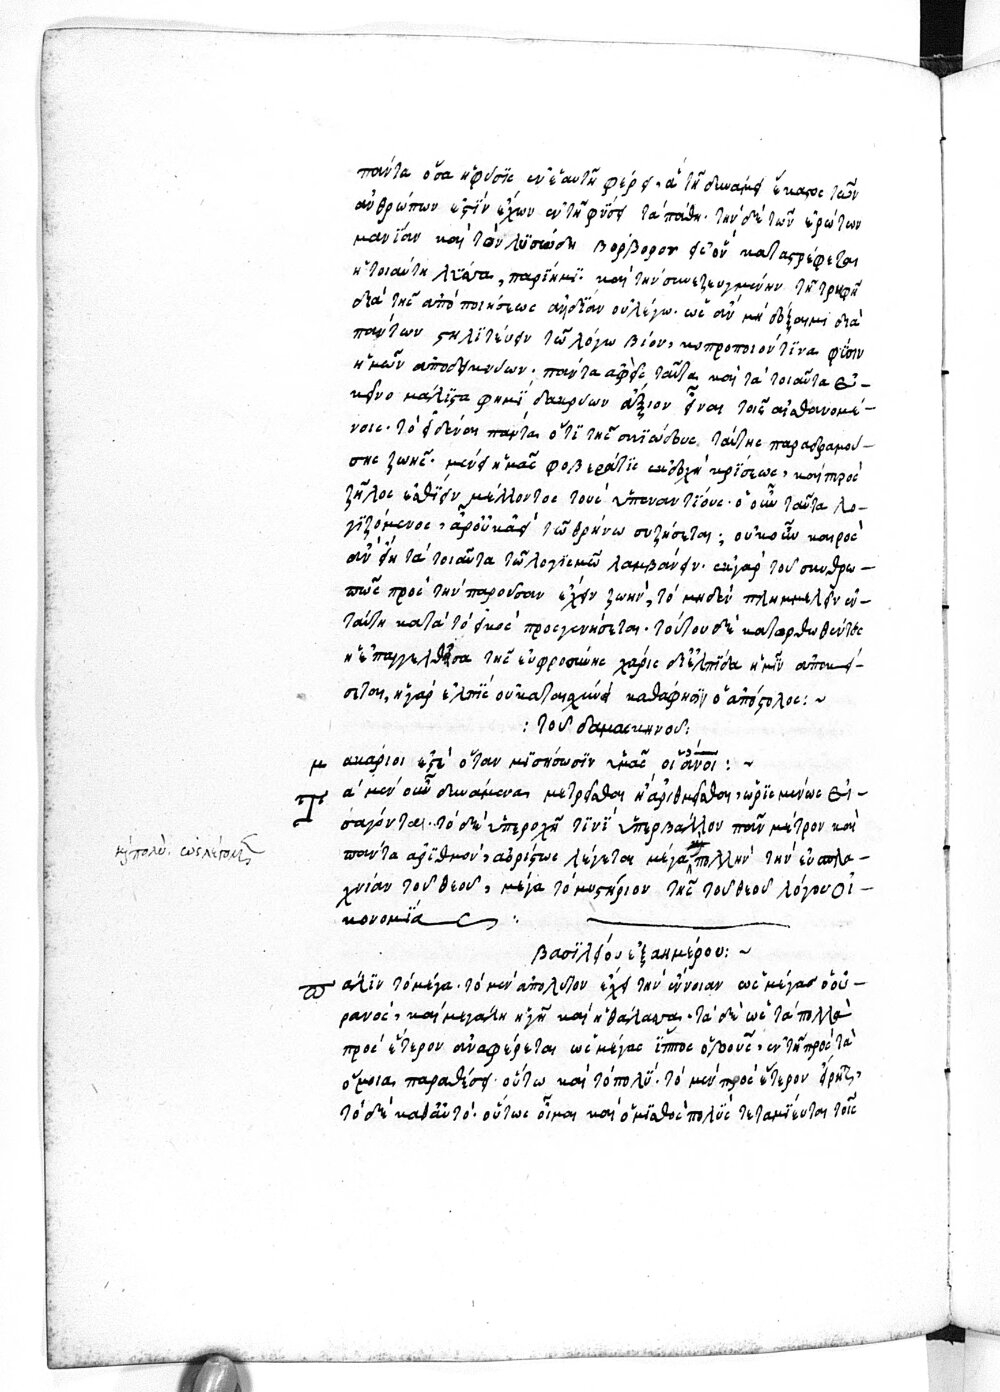 πάντα ὅσα ἡ φύσις ἐν ἑαυτῇ φέρει, ἃ τῇ δυνάμει ἕκαστος τῶν
ἀνθρώπων ἐστὶν ἔχων ἐν τῇ φύσει τὰ πάθη· τὴν δὲ τῶν ἐρώτων
μανίαν καὶ τὸν λυσώδη βόρβορον εἰς ὃν καταστρέφεται
ἡ τοιαύτη λύσσα, παρίημι· καὶ τὴν συνεζευγμένην τῇ τρυφῇ
διὰ τῆς ἀποποιήσεως ἀηδίαν οὐ λέγω· ὡς ἂν μὴ δόξαιμι διὰ
πάντων στηλιτεύειν τῷ λόγῳ βίον, κοπροποιόν τινα φύσιν
ἡμῶν ἀποδεικνύων· πάντα ἀφεὶς ταῦτα καὶ τὰ τοιαῦτα ἐ-
κεῖνο μάλιστα φημὶ δακρύων ἄξιον εἶναι τοῖς αἰσθανομέ-
νοις· τὸ εἰδέναι πάντα ὅτι τῆς σκιώδους ταύτης παραδραμού-
σης ζωῆς· μένει ἡμᾶς φοβερά τις ἐκδοχὴ κρίσεως, καὶ πυρὸς
ζῆλος ἐσθίειν μέλλοντος τοὺς ὑπεναντίους· ὁ οὖν ταῦτα λο-
γιζόμενος, ἆρ' οὐκ ἀεὶ τῷ θρήνῳ συζήσεται; οὐκοῦν καιρὸς
ἂν εἴη τὰ τοιαῦτα τῷ λογισμῷ λαμβάνειν· ἐκ γὰρ τοῦ σκυθρω-
πῶς πρὸς τὴν παροῦσαν ἔχειν ζωήν, τὸ μηδὲν πλημμελεῖν ἐν
ταύτῃ κατὰ τὸ εἰκὸς προσγενήσεται· τούτου δὲ κατορθωθέντος
ἡ ἐπαγγελθεῖσα τῆς εὐφροσύνης χάρις δι' ἐλπίδα ἡμῖν ἀποκεί-
σεται, ἡ γὰρ ἐλπὶς οὐ καταισχύνει καθά φησιν ὁ ἀπόστολος: ~
: τοῦ δαμασκηνοῦ:
μακάριοι ἐστὲ ὅταν μισήσωσιν ὑμᾶς οἱ ἄνοι : ~
Τὰ μὲν οὖν δυνάμενα μετρεῖσθαι ἢ ἀριθμεῖσθαι, ὡρισμένως εἰ-
σάγονται· τὸ δὲ ὑπεροχῇ τινὶ ὑπερβάλλον πᾶν μέτρον καὶ
πάντα ἀριθμόν, ἀορίστως λέγεται μέγα πολλὴν τὴν εὐσπλα-
χνίαν τοῦ θεοῦ, μέγα τὸ μυστήριον τῆς τοῦ θεοῦ λόγου οἰ-
κονομίας :
ἢ πολύ. ὡς λέγομεν
Βασιλείου ἑξαημέρου: ~
πάλιν τὸ μέγα· τὸ μὲν ἀπόλυτον ἔχει τὴν ἔννοιαν ὡς μέγας ὁ οὐ-
ρανός, καὶ μεγάλη ἡ γῆ καὶ ἡ θάλασσα· τὰ δὲ ὡς τὰ πολλὰ
πρὸς ἕτερον ἀναφέρεται ὡς μέγας ἵππος ὁ βοῦς, ἐν τῇ πρὸς τὰ
ὅμοια παραθέσει· οὕτω καὶ τὸ πολύ· τὸ μὲν πρὸς ἕτερον εἴρηται,
τὸ δὲ καθ' αὑτό· οὕτως οἶμαι καὶ ὁ μισθὸς πολὺς τεταμίευται τοῖς